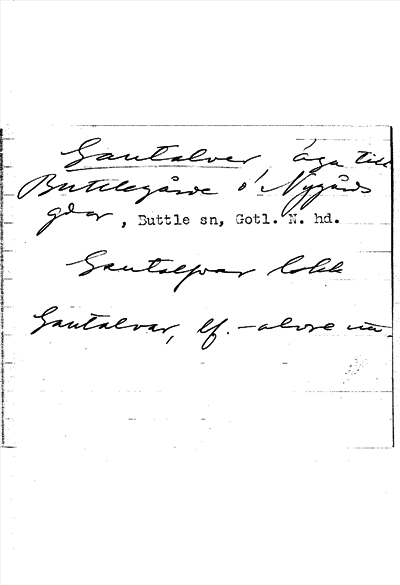 Gantalver, äga till
Buttlegårde o. Nygårds
gdar, Buttle sn, Gotl. N. hd.
Gantalvar lokk
Gantalvar, lf. -alvre m.